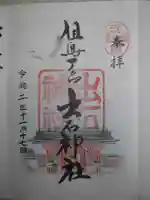 奉拝
但馬一の宮
出石神社
令和二年十一月十七日